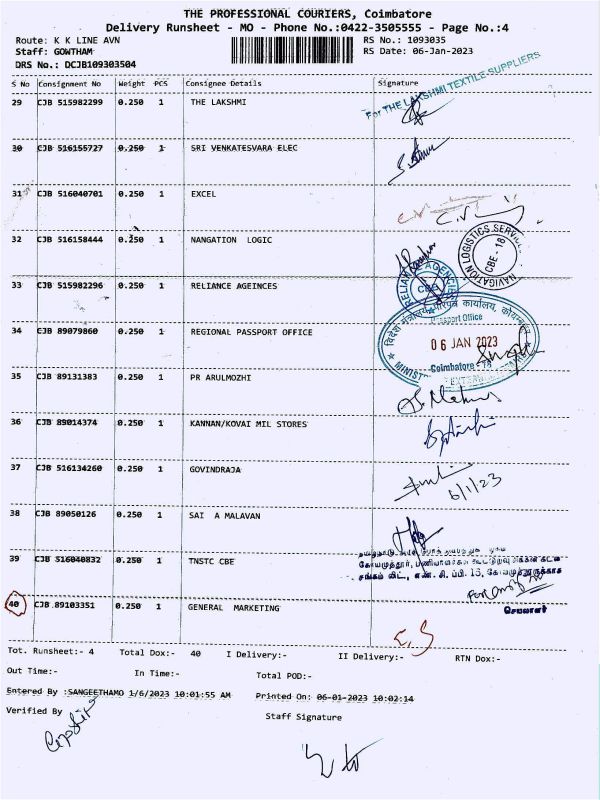 THE PROFESSIONAL COURIERS, Coimbatore
Delivery Runsheet - MO - Phone No.:0422-3505555 - Page No.:4
Route: K K LINE AVN
RS No.: 1093035
Staff: GOWTHAM
RS Date: 06-Jan-2023
DRS No.: DCJB109303504
S No Consignment No Weight PCS Consignee Details Signature
29 CJB 515982299 0.250 1 THE LAKSHMI
For THE LAKSHMI TEXTILE SUPPLIERS
30 CJB 516155727 0.250 1 SRI VENKATESVARA ELEC
31 CJB 516040701 0.250 1 EXCEL
32 CJB 516158444 0.250 1 NANGATION LOGIC
NAVIGATION LOGISTICS SERVICE
CBE - 18
33 CJB 515982296 0.250 1 RELIANCE AGEINCES
AGENCIES
CBE
34 CJB 89079860 0.250 1 REGIONAL PASSPORT OFFICE
Passport Office
06 JAN 2023
Coimbatore - 18
35 CJB 89131383 0.250 1 PR ARULMOZHI
36 CJB 89014374 0.250 1 KANNAN/KOVAI MIL STORES
37 CJB 516134260 0.250 1 GOVINDRAJA
6/1/23
38 CJB 89050126 0.250 1 SAI A MALAVAN
39 CJB 516040832 0.250 1 TNSTC CBE
40 CJB 89103351 0.250 1 GENERAL MARKETING
Tot. Runsheet:- 4 Total Dox:- 40 I Delivery:- II Delivery:- RTN Dox:-
Out Time:- In Time:- Total POD:-
Entered By :SANGEETHAMO 1/6/2023 10:01:55 AM Printed On: 06-01-2023 10:02:14
Verified By
Staff Signature